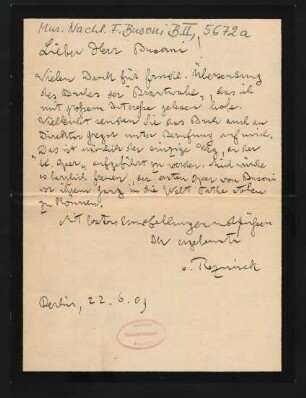 Mus. Nachl. F. Busoni B II, 5672a
Lieber Herr Busoni!
Vielen Dank für freundl. Übersendung
des Buches der Brautwahl, das ich
mit großem Interesse gelesen habe.
Vielleicht senden Sie das Buch auch an
Direktor Gregor unter Berufung auf mich.
Das ist vielleicht der einzige Weg, an der
K. Oper aufgeführt zu werden. Mich würde
es herzlich freuen, der ersten Oper von Busoni
vor ihrem Gang in die Welt Pathe stehen
zu können.
Mit besten Empfehlungen und Grüßen
Ihr ergebenster
v. Reznicek
Berlin, 22.6.09